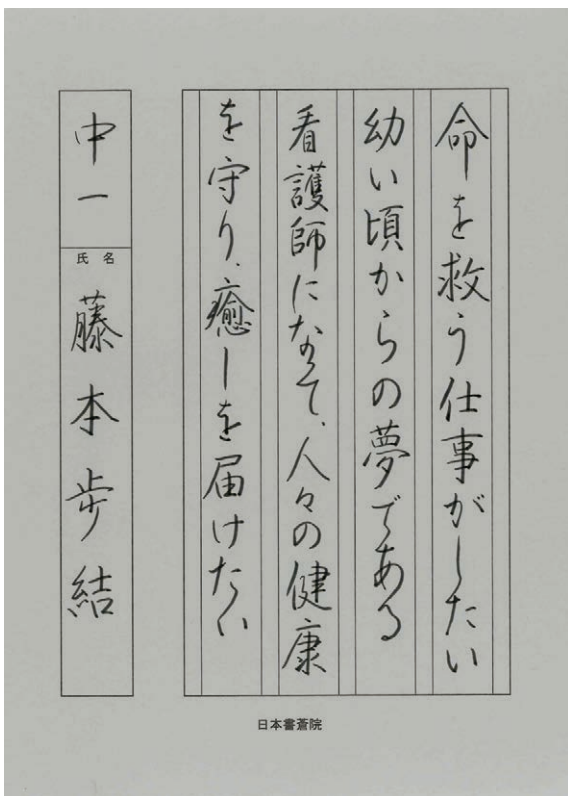 命を救う仕事がしたい
幼い頃からの夢である
看護師になって、人々の健康
を守り、癒しを届けたい
中一
氏名
藤本歩結
日本書蒼院